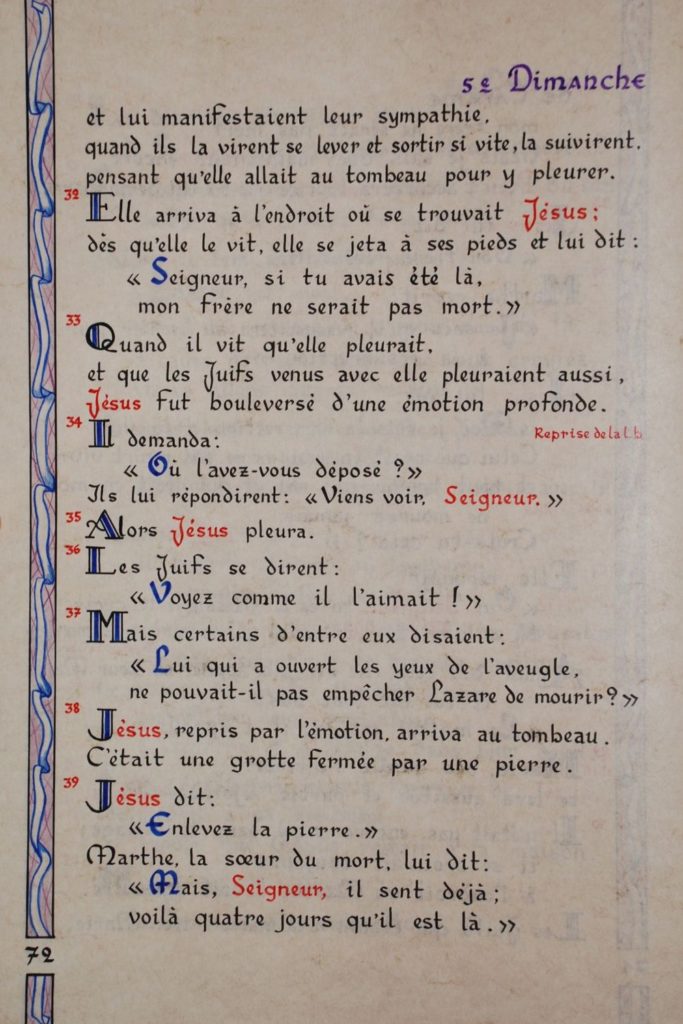 5e Dimanche
et lui manifestaient leur sympathie,
quand ils la virent se lever et sortir si vite, la suivirent,
pensant qu'elle allait au tombeau pour y pleurer.
32 Elle arriva à l'endroit où se trouvait Jésus ;
dès qu'elle le vit, elle se jeta à ses pieds et lui dit :
« Seigneur, si tu avais été là,
mon frère ne serait pas mort. »
33 Quand il vit qu'elle pleurait,
et que les Juifs venus avec elle pleuraient aussi,
Jésus fut bouleversé d'une émotion profonde.
Reprise de la l. b
34 Il demanda :
« Où l'avez-vous déposé ? »
Ils lui répondirent : « Viens voir, Seigneur. »
35 Alors Jésus pleura.
36 Les Juifs se dirent :
« Voyez comme il l'aimait ! »
37 Mais certains d'entre eux disaient :
« Lui qui a ouvert les yeux de l'aveugle,
ne pouvait-il pas empêcher Lazare de mourir ? »
38 Jésus, repris par l'émotion, arriva au tombeau.
C'était une grotte fermée par une pierre.
39 Jésus dit :
« Enlevez la pierre. »
Marthe, la sœur du mort, lui dit :
« Mais, Seigneur, il sent déjà ;
voilà quatre jours qu'il est là. »
72